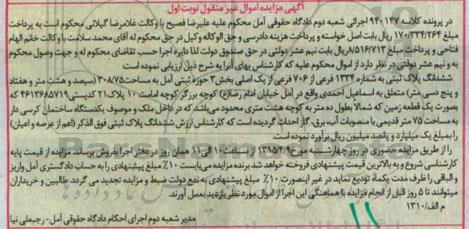 آگهی مزایده اموال غیر منقول نوبت اول
در پرونده کلاسه ۹۴۰۱۴۷ اجرائی شعبه دوم دادگاه حقوقی آمل محکوم علیه علیرضا فصیح با وکالت غلامرضا گیلانی محکوم است به پرداخت
مبلغ ۱۷۰/۳۳۴/۲۶۴ ریال بابت اصل خواسته و پرداخت هزینه دادرسی و حق الوکاله وکیل در حق محکوم له آقای محمد سلامت با وکالت خانم الهام
فتاحی و پرداخت مبلغ ۸/۵۱۶/۷۱۳ ریال بابت نیم عشر دولتی در حق صندوق دولت لذا دایره اجرا حسب تقاضای محکوم له و جهت وصول محکوم
به و نیم عشر دولتی در نظر دارد از اموال محکوم علیه که کارشناس بهای آنرا به شرح ذیل ارزیابی نموده است
ششدانگ پلاک ثبتی به شماره ۱۳۳۴ فرعی از ۷۰۶ فرعی از یک اصلی بخش ۳ حوزه ثبتی آمل به مساحت ۳۰۸/۷۵ (سیصد و هشت متر و هفتاد
و پنج دسی متر) متعلق به اسماعیل احمدی واقع در آمل خیابان امام رضا(ع) کوچه برزگر کوچه امامت ۱۰ پلاک ۲۱ کدپستی ۴۶۱۳۶۸۵۷۱۹ که
بصورت یک قطعه زمین که شمالا بطول ده متر به کوچه هشت متری محدود می باشد که در داخل ملک و موصوف یکدستگاه ساختمان کرسی دار
به مساحت ۷۵ متر قدیمی با منصوبات آب برق، گاز احداث گردیده است که کارشناس ارزش ششدانگ پلاک ثبتی فوق الذکر (اعم از عرصه و اعیان)
را بمبلغ یک میلیارد و پانصد میلیون ریال برآورد نموده است.
را از طریق مزایده حضوری در روز چهارشنبه مورخ ۱۳۹۵/۴/۹ از ساعت ۱۰ الی ۱۱ همان روز در دفتر اجرا بفروش برساند مزایده از قیمت پایه
کارشناسی شروع و به بالاترین قیمت پیشنهادی فروخته خواهد شد برنده مزایده می بایست ۱۰٪ مبلغ پیشنهادی را به حساب دادگستری آمل واریز
و الباقی را ظرف مدت یکماه تودیع نماید در غیر اینصورت ۱۰٪ مبلغ پیشنهادی به نفع دولت ضبط و مزایده تجدید می گردد طالبین و خریداران
میتوانند تا ۵ روز قبل از انجام مزایده با هماهنگی این اجرا از اموال مورد نظر بازدید بعمل آورند.
م الف/۱۳۱۰
مدیر شعبه دوم اجرای احکام دادگاه حقوقی آمل- رجبعلی نیا